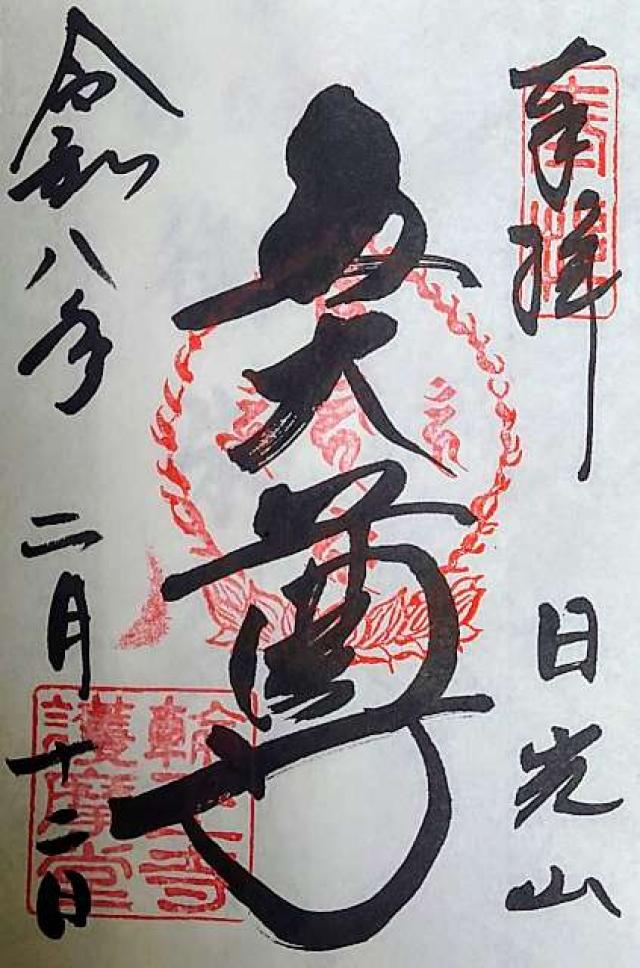 奉拝
日光山
五大尊
令和八年
二月十二日
輪王寺
護摩堂